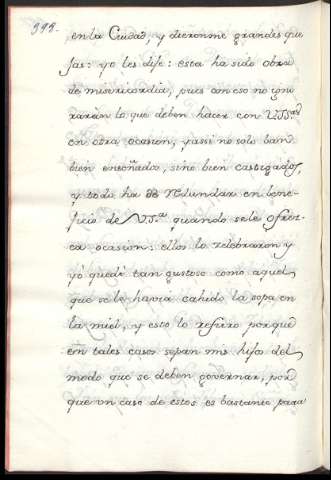 en la Ciudad, y dieronme grandes que
jas: yo les dije: esta ha sido obra
de misericordia, pues con eso no igno
raràn lo que deben hacer con VSS.as
en otra ocasion, y assi no solo ban
bien enseñados, sino bien castigados,
y todo ha de redundar en bene-
ficio de VS.as quando sele ofrez-
ca ocasion: ellos lo zelebraron y
yó quedè tan gustoso como aquel
que se le havia cahido la sopa en
la miel, y esto lo refiero porque
en tales casos sepan mis hijos del
modo que se deben governar, por
que un caso de estos es bastante para